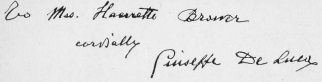 To Mrs. Harriette Brower
cordially
Giuseppe De Luca